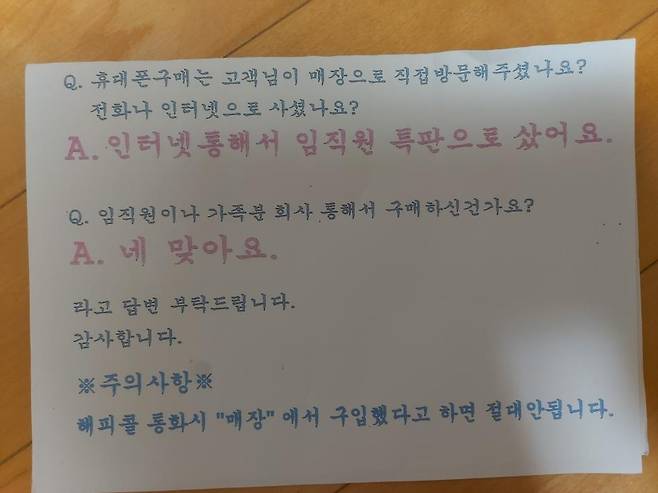 Q. 휴대폰구매는 고객님이 매장으로 직접방문해주셨나요?
전화나 인터넷으로 사셨나요?
A. 인터넷통해서 임직원 특판으로 샀어요.
Q. 임직원이나 가족분 회사 통해서 구매하신건가요?
A. 네 맞아요.
라고 답변 부탁드립니다.
감사합니다.
※주의사항※
해피콜 통화시 "매장" 에서 구입했다고 하면 절대안됩니다.